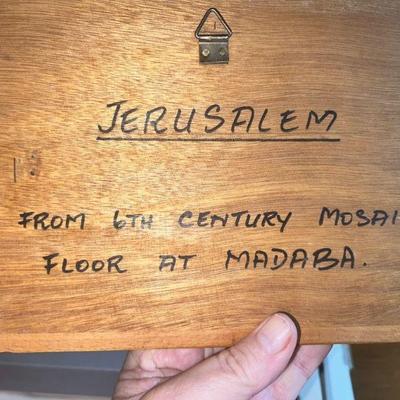 JERUSALEM
FROM 6TH CENTURY MOSAI
FLOOR AT MADABA.